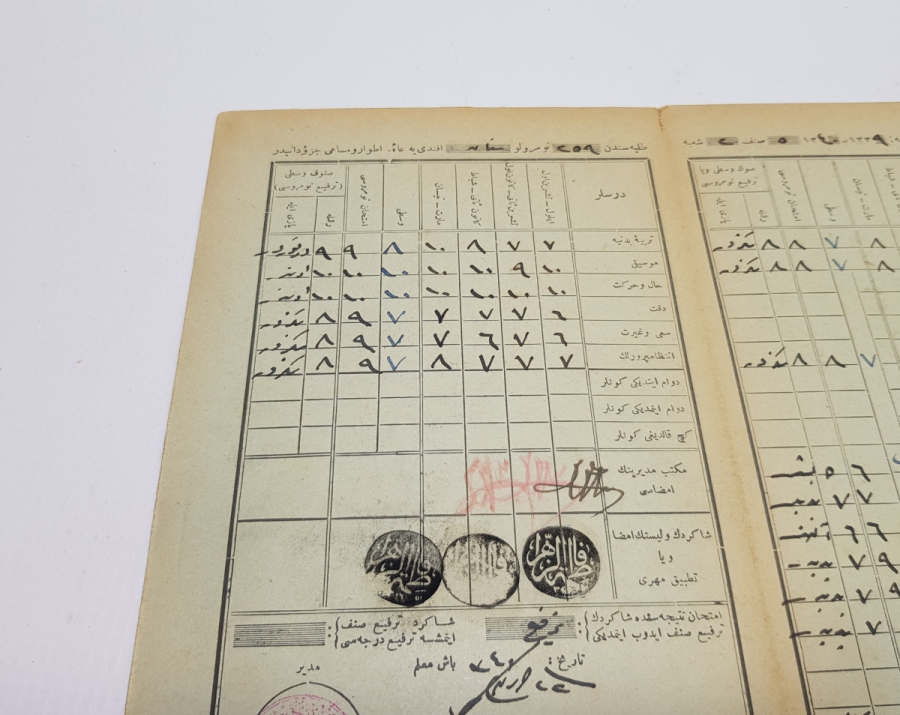 طلبه‌سندن ٢٥٩ نومرولو افندی‌یه عائد اطوار و مساعی جزؤدانیدر
درسلر
ایلول - تشرین اول
تشرین ثانی - کانون اول
کانون ثانی - شباط
مارت - نیسان
وسطی
امتحان نومروسی
صنوف وسطی
(ترفیع نومروسی)
رقمله
یازی ایله
تربیهٔ بدنیه ٧ ٧ ٨ ١٠ ٨ ٩ ٩ دوقوز
موسیقی ١٠ ٩ ١٠ ١٠ ١٠ ١٠ ١٠ اون
حال و حرکت ١٠ ١٠ ١٠ ١٠ ١٠ ١٠ ١٠ اون
دقت ٦ ٧ ٧ ٧ ٧ ٩ ٨ سکز
سعی و غیرت ٦ ٧ ٦ ٧ ٧ ٩ ٨ سکز
انتظامپرورلك ٧ ٧ ٧ ٨ ٧ ٩ ٨ سکز
دوام ایتدیکی کونلر
دوام ایتمدیکی کونلر
کچ قالدیغی کونلر
مکتب مدیرینك
امضاسی
شاکردك ولیسنك امضا
ویا
تطبیق مهری
فاطمة الزهرا
امتحان نتیجه‌سنده شاکردك
ترفیع صنف ایدوب ایتمدیکی
ترفیع
شاکرد ترفیع صنف
ایتمشسه ترفیع درجه‌سی
تاریخ:
باش معلم
مدیر
١٣٣٩ - ١٣٤٠ ٥ صنف ٢ شعبه
صوك وسطی ویا
ترفیع نومروسی
رقمله
یازی ایله
امتحان نومروسی
وسطی
مارت - نیسان
٨ ٧ ٨ ٨ سکز
٨ ٧ ٨ ٨ سکز
٧ ٨ ٨ سکز
٦ ٥ بش
٧ ٧ یدی
٦ ٦ آلتی
٩ ٧ یدی
٩ ٧ یدی
٧ یدی